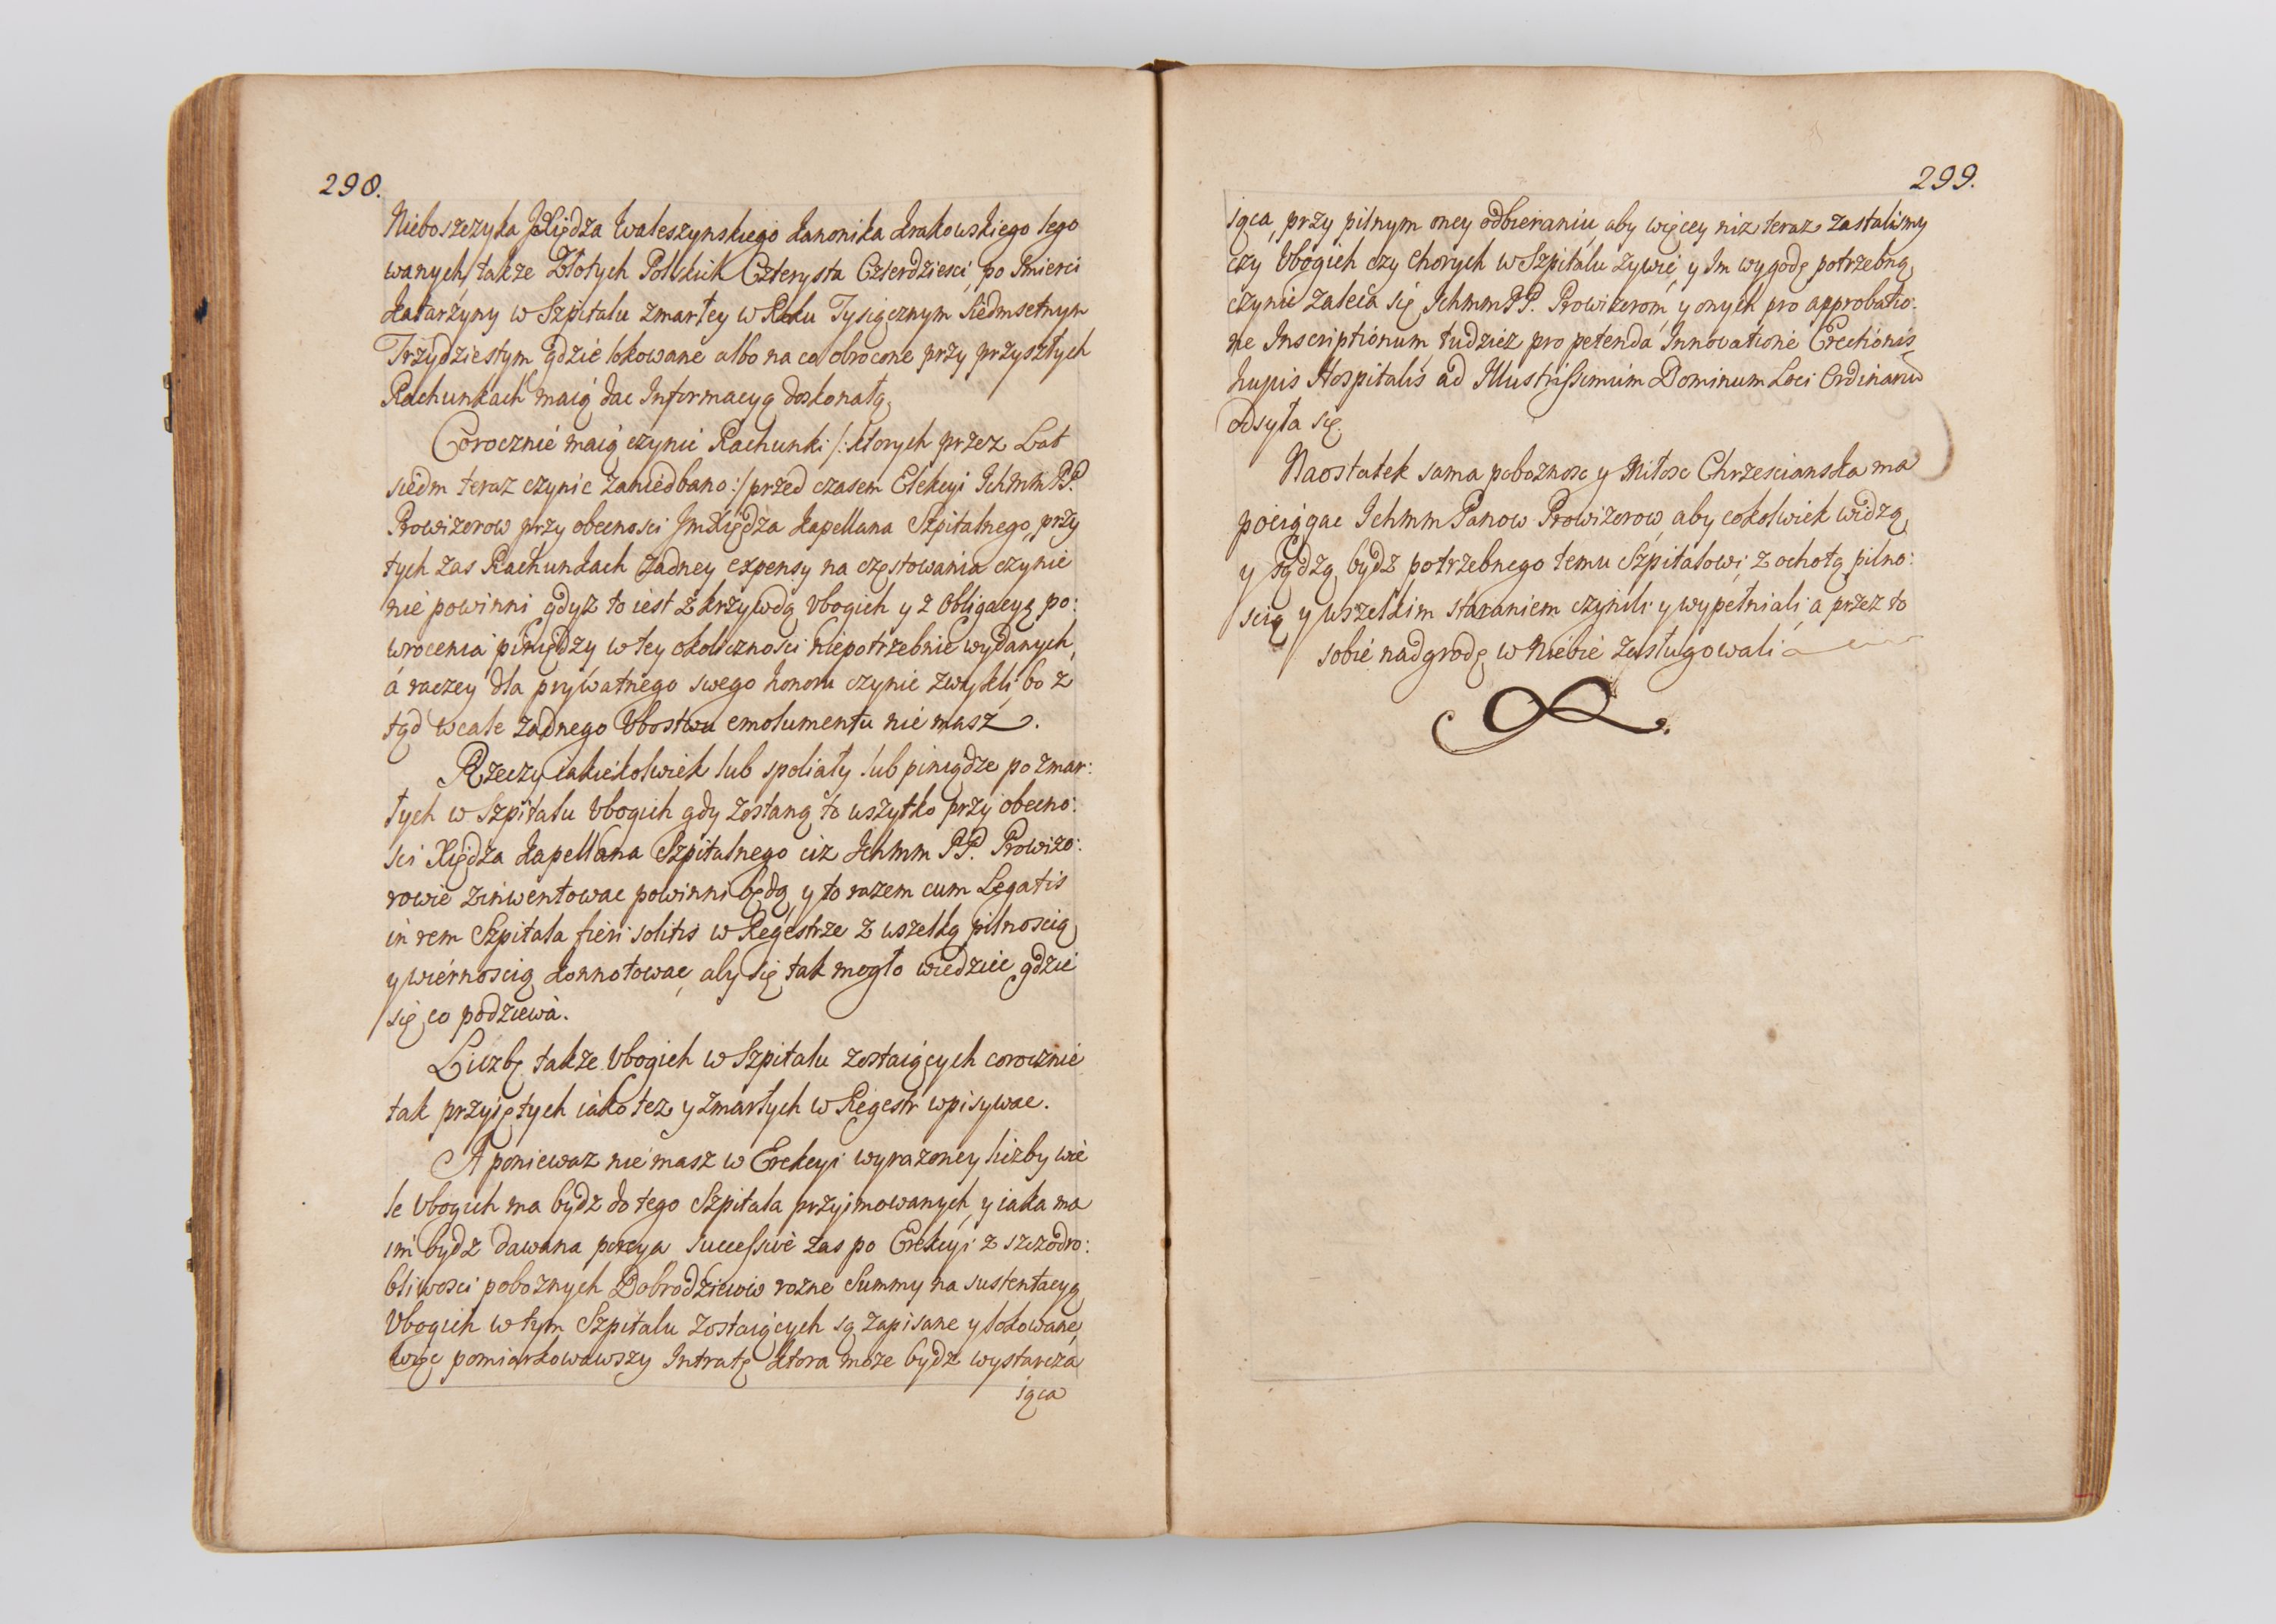 298.
Nieboszczyka JXiędza Waleszynskiego Kanonika Krakowskiego lego
wanych, także Złotych Polskich Czterysta Czterdziesci, po Smierci
Katarzyny w Szpitalu zmarłey w Roku Tysiącznym Siedmsetnym
Trzydziestym gdzie lokowane albo na co obrocone przy przyszłych
Rachunkach maią dac Informacyą doskonałą.
Corocznie maią czynic Rachunki /: ktorych przez Lat
siedm teraz czynic zaniedbano :/ przed czasem Elekcyi Ichmm PP.
Prowizorow przy obecnosci JmXiędza Kapellana Szpitalnego, przy
tych zas Rachunkach zadney expensy na częstowania czynic
nie powinni gdyz to iest z krzywdą Vbogich y z Obligacyą po:
wrocenia pieniędzy w tey okolicznosci niepotrzebnie wydanych,
a raczey dla prywatnego swego honoru czynic zwykli, bo z
tąd wcale zadnego Vbostwu emolumentu nie masz.
Rzeczy iakiekolwiek lub spoliały lub pieniądze po zmar:
łych w Szpitalu Vbogich gdy zostaną to wszytko przy obecno:
sci Xiędza Kapellana Szpitalnego ciz Ichmm PP. Prowizo:
rowie zinwentowac powinni będą, y to razem cum Legatis
in rem Szpitala fieri solitis w Regestrze z wszelką pilnoscią
y wiernoscią konnotowac, aby się tak mogło wiedziec gdzie
się co podziewa.
Liczbę także Vbogich w Szpitalu zostaiących corocznie
tak przyiętych iako tez y zmarłych w Regestr wpisywac.
A poniewaz nie masz w Erekcyi wyrazoney liczby wie
le Vbogich ma bydz do tego Szpitala przyimowanych, y iaka ma
im bydz dawana porcya successive zas po Erekcyi z szczodro:
bliwosci poboznych Dobrodzieiow rozne Summy na sustentacyą
Vbogich w tym Szpitalu zostaiących są zapisane y lokowane,
więc pomiarkowawszy Intratę ktora może bydz wystarcza
iąca
299.
iąca, przy pilnym oney odbieraniu, aby więcey niz teraz zastalismy
czy Vbogich czy Chorych w Szpitalu zywic, y Im wygodę potrzebną
czynic zaleca się Ichmm PP. Prowizorom, y onych pro approbatio:
ne Inscriptionum, tudziez pro petenda Innovatione Erectionis
hujus Hospitalis ad Illustrissimum Dominum Loci Ordinariu
odsyła się.
Naostatek sama poboznosc y Miłosc Chrzescianska ma
pociągac Ichmm Panow Prowizorow, aby cokolwiek widzą
y sądzą bydz potrzebnego temu Szpitalowi, z ochotą pilno:
scią y wszelkim staraniem czynili y wypełniali, a przez to
sobie nadgrodę w Niebie zasługowali